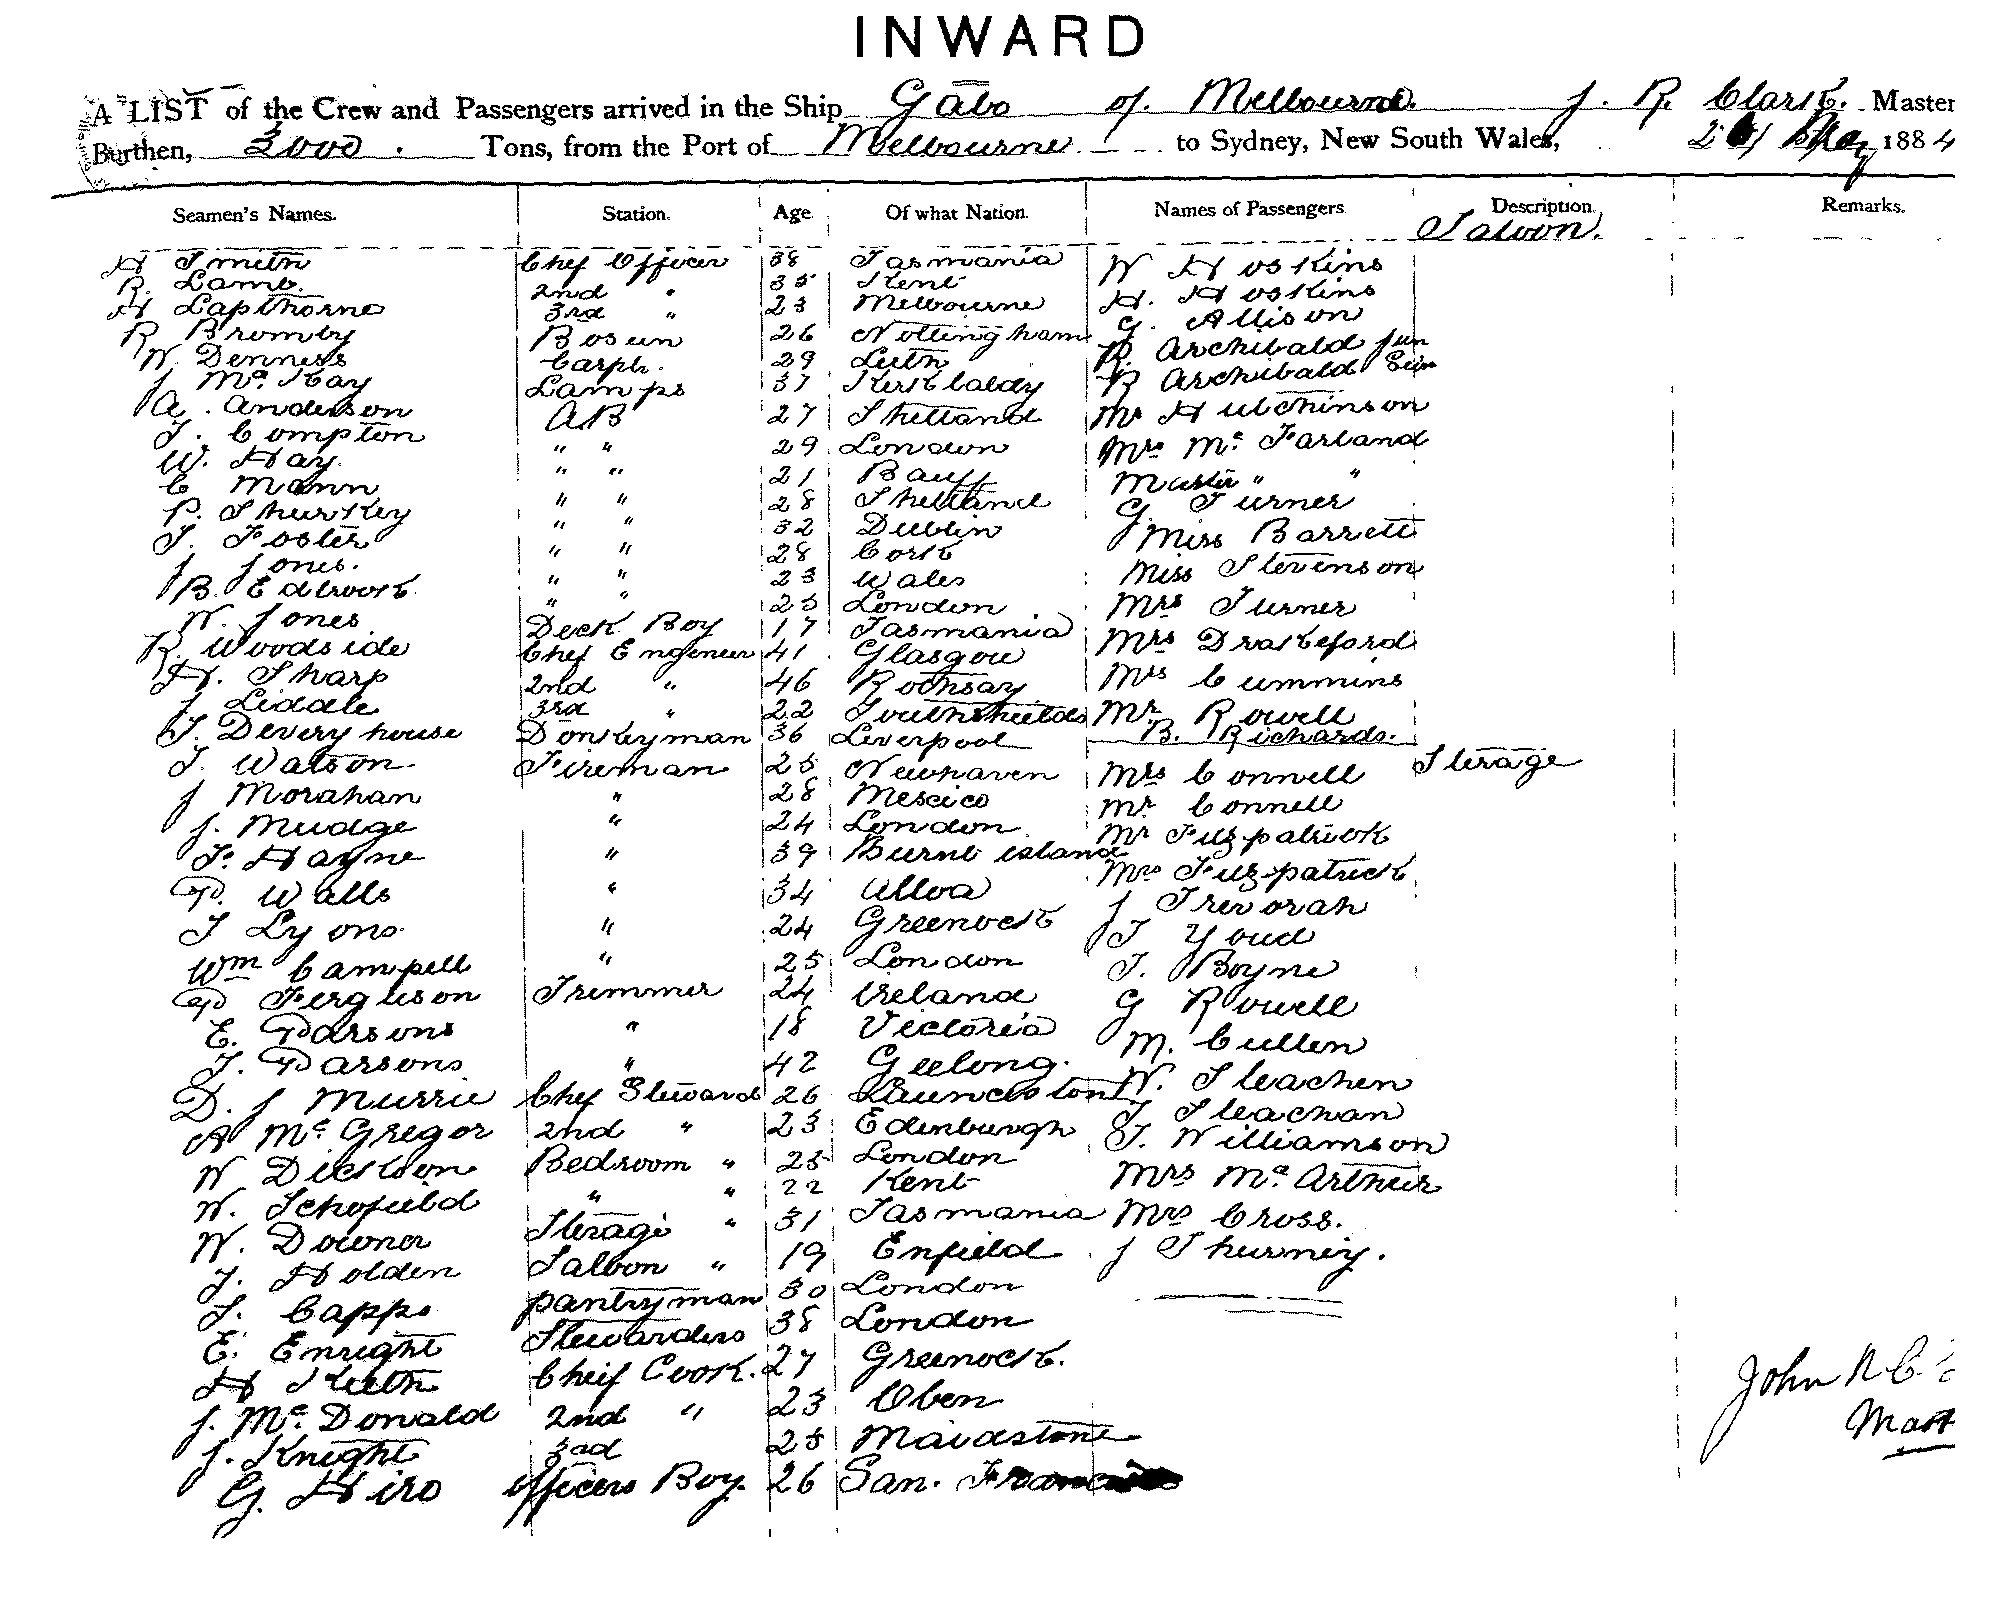 INWARD
A LIST of the Crew and Passengers arrived in the Ship Gabo of Melbourne J. R. Clark. Master
Burthen, 2000 . Tons, from the Port of Melbourne to Sydney, New South Wales, May 1884
Seamen's Names. Station. Age Of what Nation. Names of Passengers Description. Remarks.
Saloon.
H Smith Chef Officer 38 Tasmania W Hoskins
R. Lamb. 2nd " 35 Kent H. Hoskins
H Lapthorne 3rd " 23 Melbourne G. Allison
R Bromby Bosun 26 Nottingham R. Archibald Jun
W. Denness Carptr. 29 Leith R Archibald Sen
J McKay Lamps 37 Kirkcaldy Mr Hutchinson
A. Anderson AB 27 Shetland Mrs McFarland
T. Compton " " 29 London Master " "
W. Hay. " " 21 Banff G. Turner
C Mann " " 28 Shetland Miss Barrett
P. Shurkey " " 32 Dublin Miss Stevenson
T. Foster " " 28 Cork Mrs Turner
J Jones. " " 23 Wales Mrs Drakeford
B. Edwork " " 25 London Mrs Cummins
W. Jones Deck Boy 17 Tasmania Mr Rowell
R. Woodside Chef Engineer 41 Glasgow B. Richards.
H. Sharp 2nd " 46 Rothsay
J Liddle 3rd " 22 Southshields
T. Deveryhouse Donkeyman 36 Liverpool
T. Watson Fireman 25 Newhaven Mrs Connell Sterage
J Morahan " 28 Mexico Mr Connell
J. Mudge " 24 London Mr Fitzpatrick
T. Hayne " 39 Burnt island Mrs Fitzpatrick
P. Walls " 34 Alloa J Trevorah
T Lyons " 24 Greenock T Youd
Wm Campell " 25 London T. Boyne
P Ferguson Trimmer 24 Ireland G Rowell
E. Parsons " 18 Victoria M. Cullen
T. Parsons " 42 Geelong. W. Steachen
D. J Murrie Chef Steward 26 Launceston T Steachan
A McGregor 2nd " 23 Edinburgh T. Williamson
W Dickson Bedroom " 25 London Mrs McArthur
W. Schofield " " 22 Kent Mrs Cross.
W. Downer Sterage " 31 Tasmania J Shurney.
J. Holden Saloon " 19 Enfield
T. Capps pantryman 30 London
E. Enright Stewardess 38 London
H Keith Cheif Cook. 27 Greenock.
J. McDonald 2nd " 23 Oben
J. Knight 3rd 25 Maidstone
G. Hiro officers Boy. 26 San.
John R C
Mast